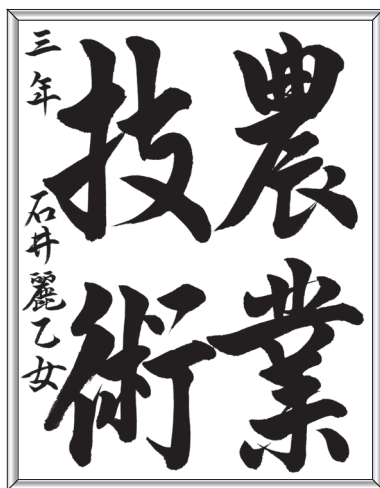 農業
技術
三年 石井麗乙女